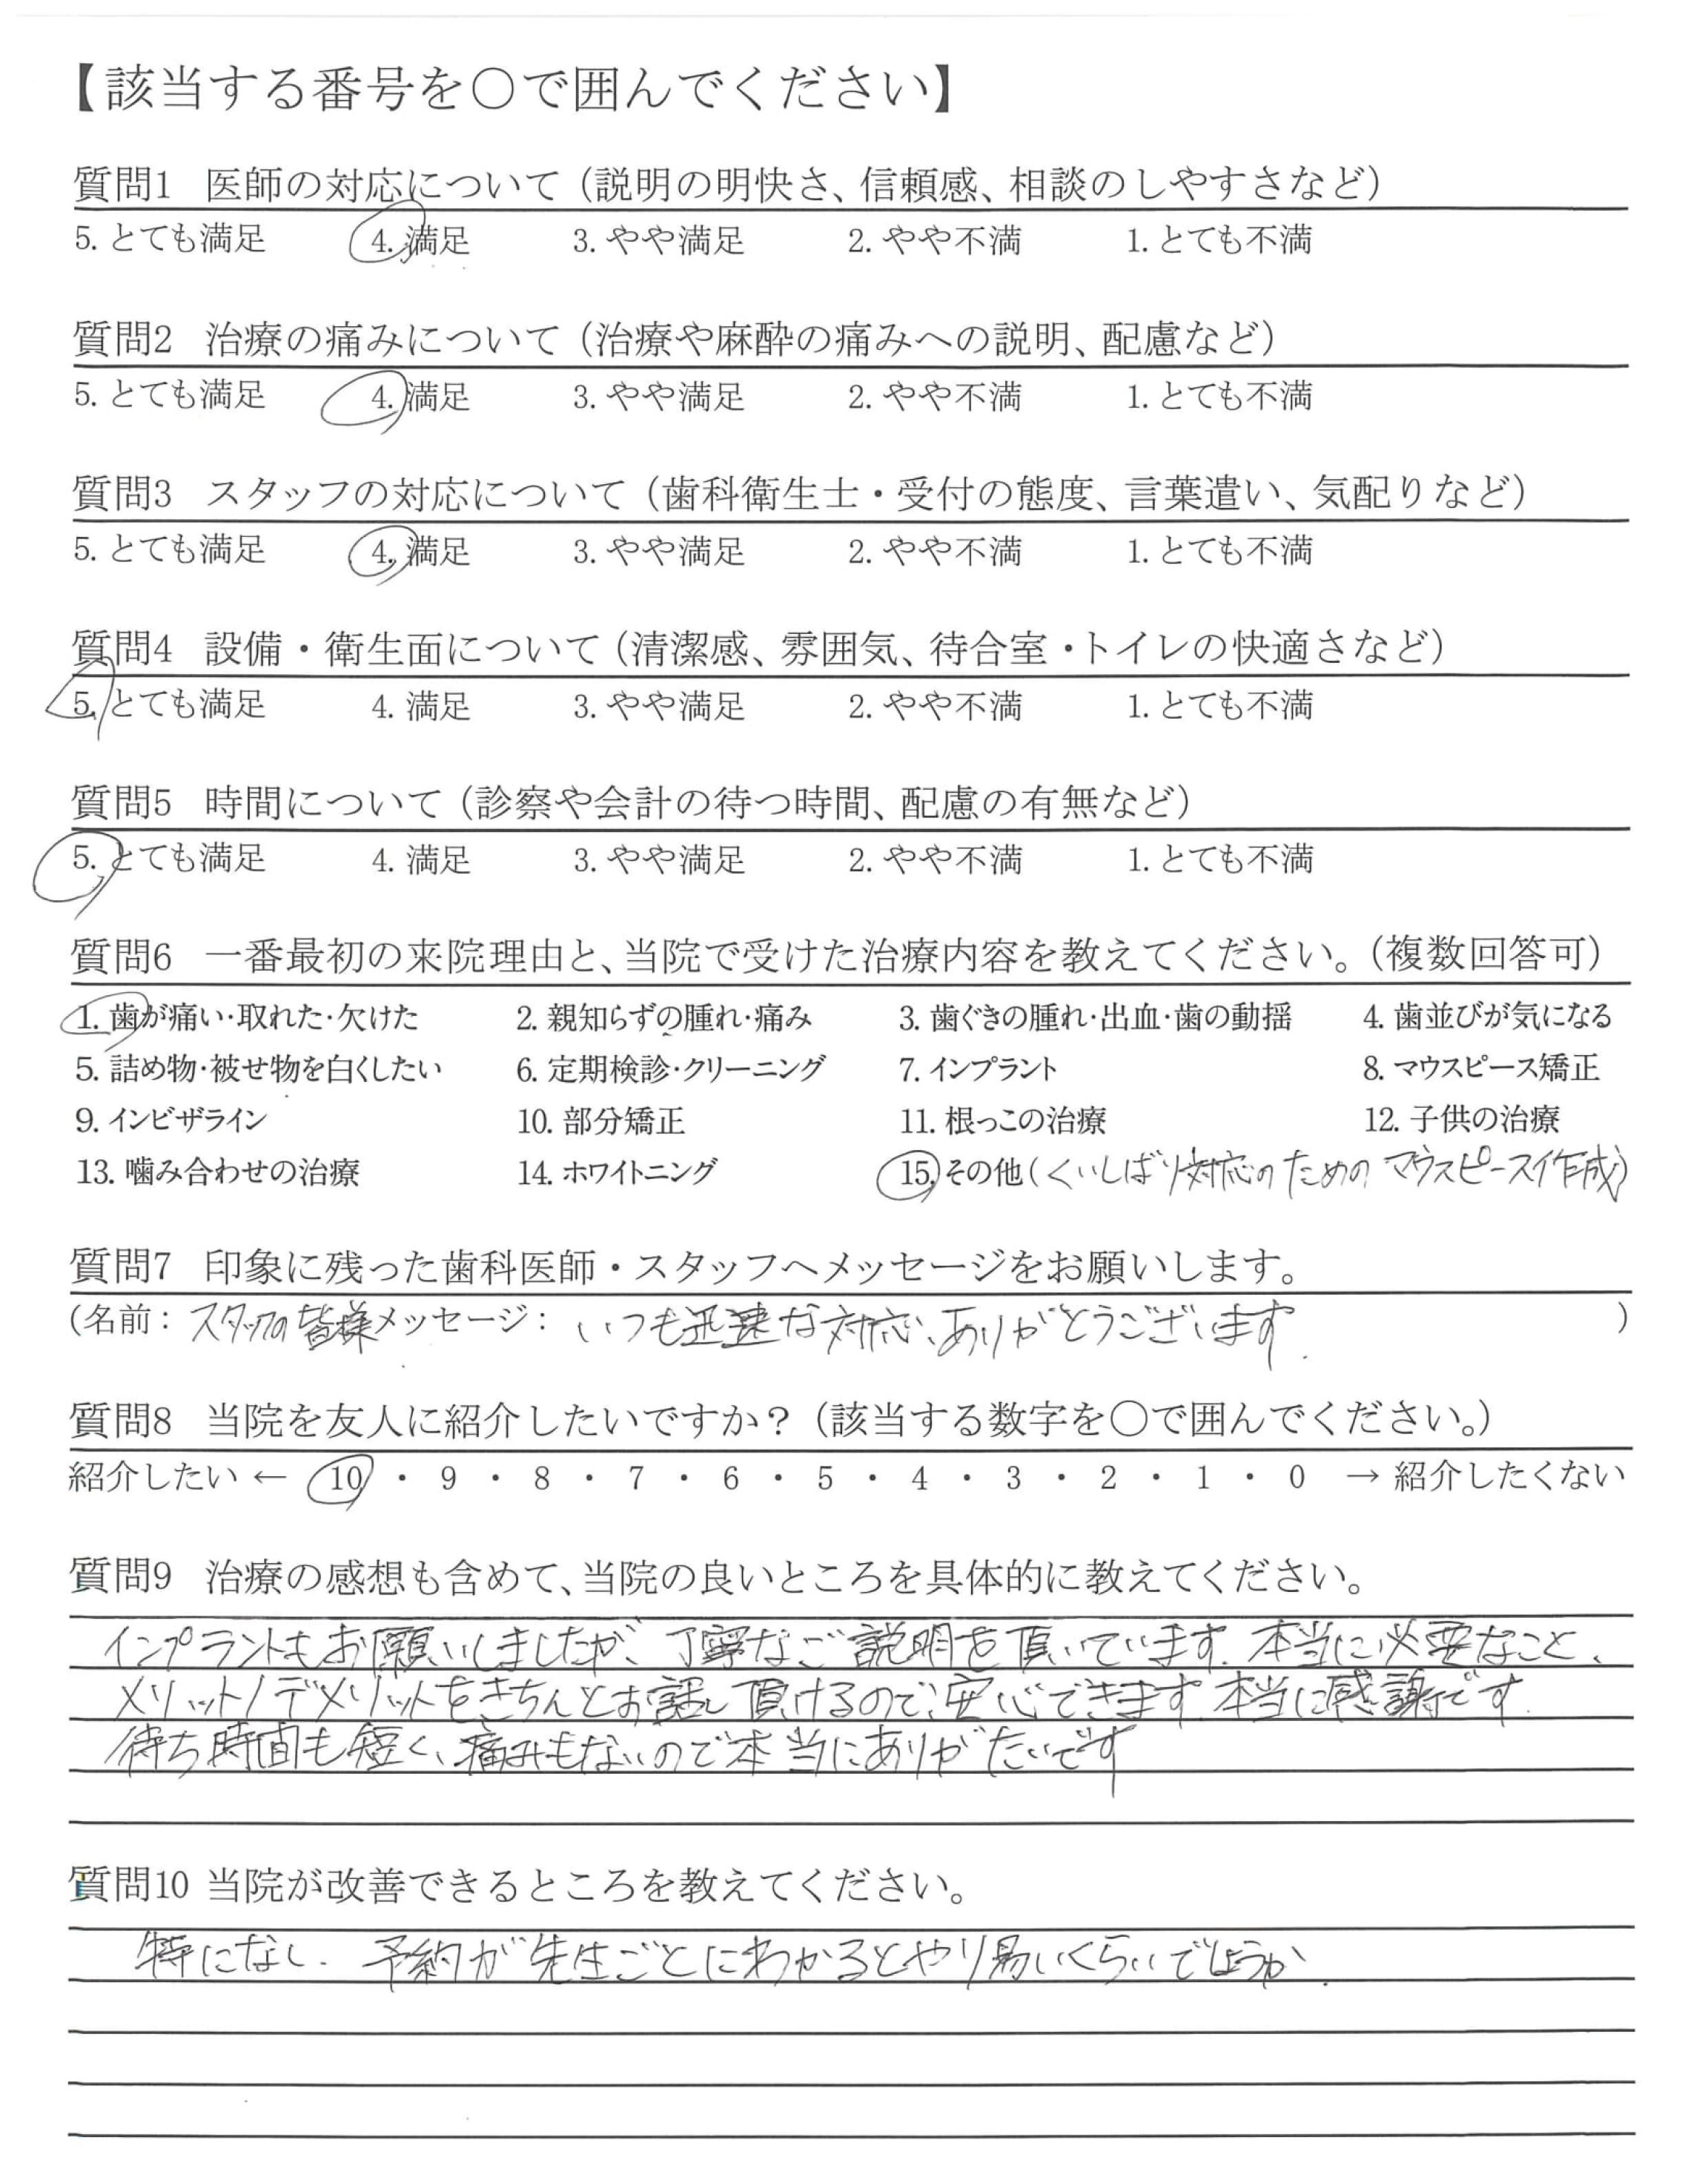 【該当する番号を○で囲んでください】
質問1 医師の対応について（説明の明快さ、信頼感、相談のしやすさなど）
5. とても満足 4. 満足 3. やや満足 2. やや不満 1. とても不満
質問2 治療の痛みについて（治療や麻酔の痛みへの説明、配慮など）
5. とても満足 4. 満足 3. やや満足 2. やや不満 1. とても不満
質問3 スタッフの対応について（歯科衛生士・受付の態度、言葉遣い、気配りなど）
5. とても満足 4. 満足 3. やや満足 2. やや不満 1. とても不満
質問4 設備・衛生面について（清潔感、雰囲気、待合室・トイレの快適さなど）
5. とても満足 4. 満足 3. やや満足 2. やや不満 1. とても不満
質問5 時間について（診察や会計の待つ時間、配慮の有無など）
5. とても満足 4. 満足 3. やや満足 2. やや不満 1. とても不満
質問6 一番最初の来院理由と、当院で受けた治療内容を教えてください。（複数回答可）
1. 歯が痛い・取れた・欠けた 2. 親知らずの腫れ・痛み 3. 歯ぐきの腫れ・出血・歯の動揺 4. 歯並びが気になる
5. 詰め物・被せ物を白くしたい 6. 定期検診・クリーニング 7. インプラント 8. マウスピース矯正
9. インビザライン 10. 部分矯正 11. 根っこの治療 12. 子供の治療
13. 噛み合わせの治療 14. ホワイトニング 15. その他（くいしばり対応のための マウスピース作成）
質問7 印象に残った歯科医師・スタッフへメッセージをお願いします。
（名前：スタッフの皆様 メッセージ：いつも迅速な対応、ありがとうございます.）
質問8 当院を友人に紹介したいですか？（該当する数字を○で囲んでください。）
紹介したい ← 10 ・ 9 ・ 8 ・ 7 ・ 6 ・ 5 ・ 4 ・ 3 ・ 2 ・ 1 ・ 0 → 紹介したくない
質問9 治療の感想も含めて、当院の良いところを具体的に教えてください。
インプラントもお願いしましたが、丁寧なご説明を頂いています. 本当に必要なこと、
メリット/デメリットをきちんとお話し頂けるので、安心できます. 本当に感謝です.
待ち時間も短く、痛みもないので本当にありがたいです
質問10 当院が改善できるところを教えてください。
特になし. 予約が先生ごとにわかるとやり易いくらいでしょうか.